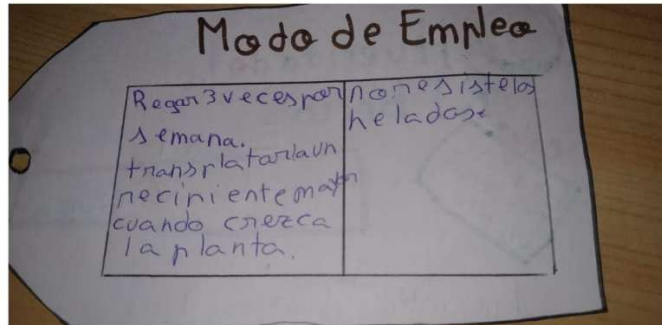 Modo de Empleo
Regar 3 veces por
semana.
transplatarla un
recipiente mayor
cuando crezca
la planta.
no resiste las
heladas.